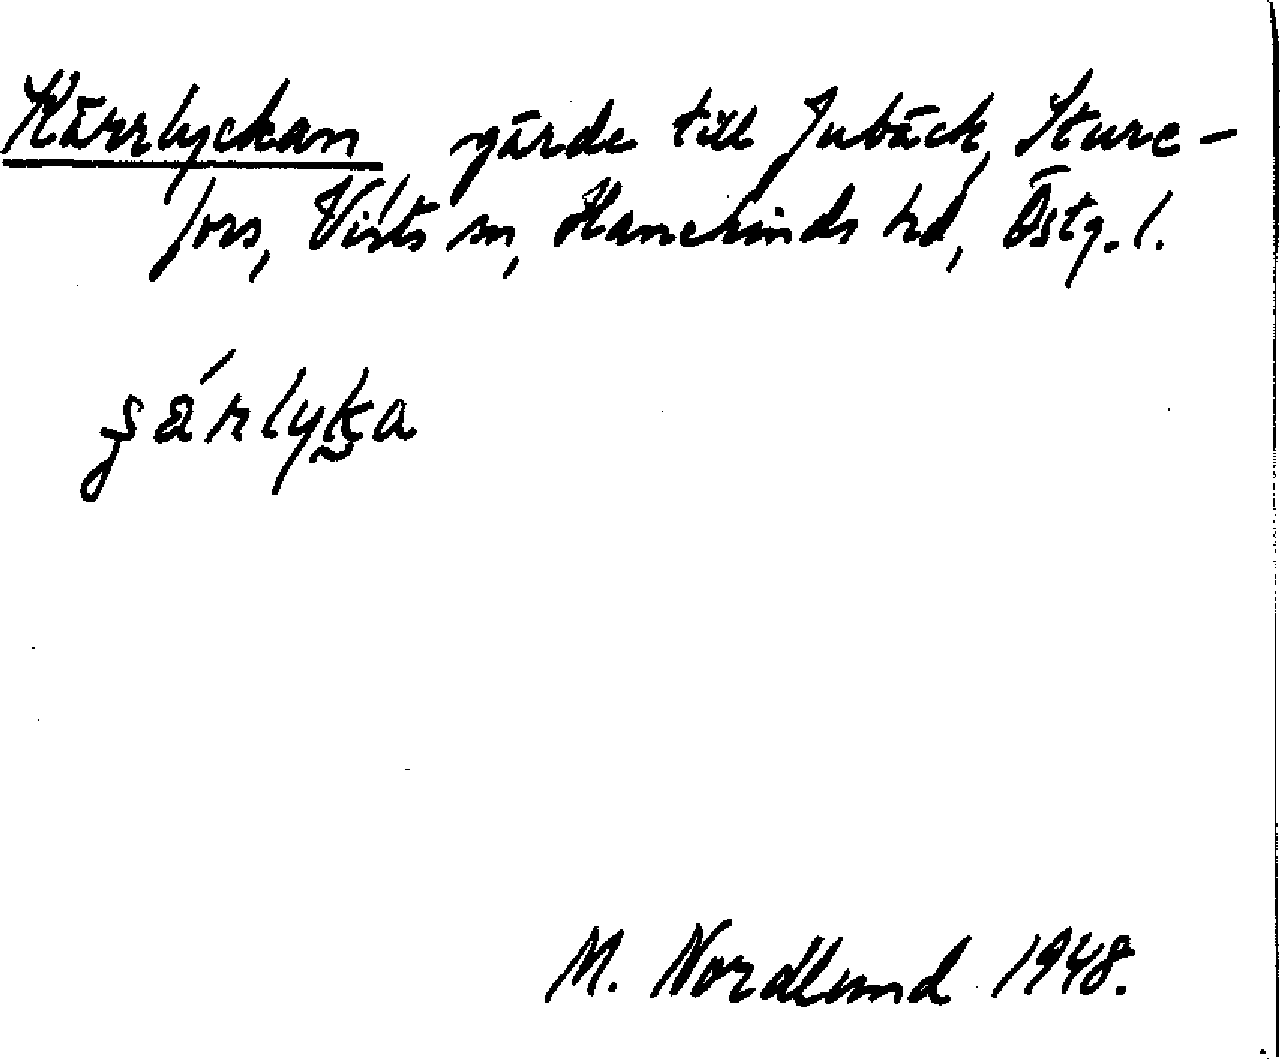 Kärrlyckan gärde till Jubäck, Sture-
fors, Vists sn, Hanekinds hd, Östg. l.
M. Nordlund 1948.